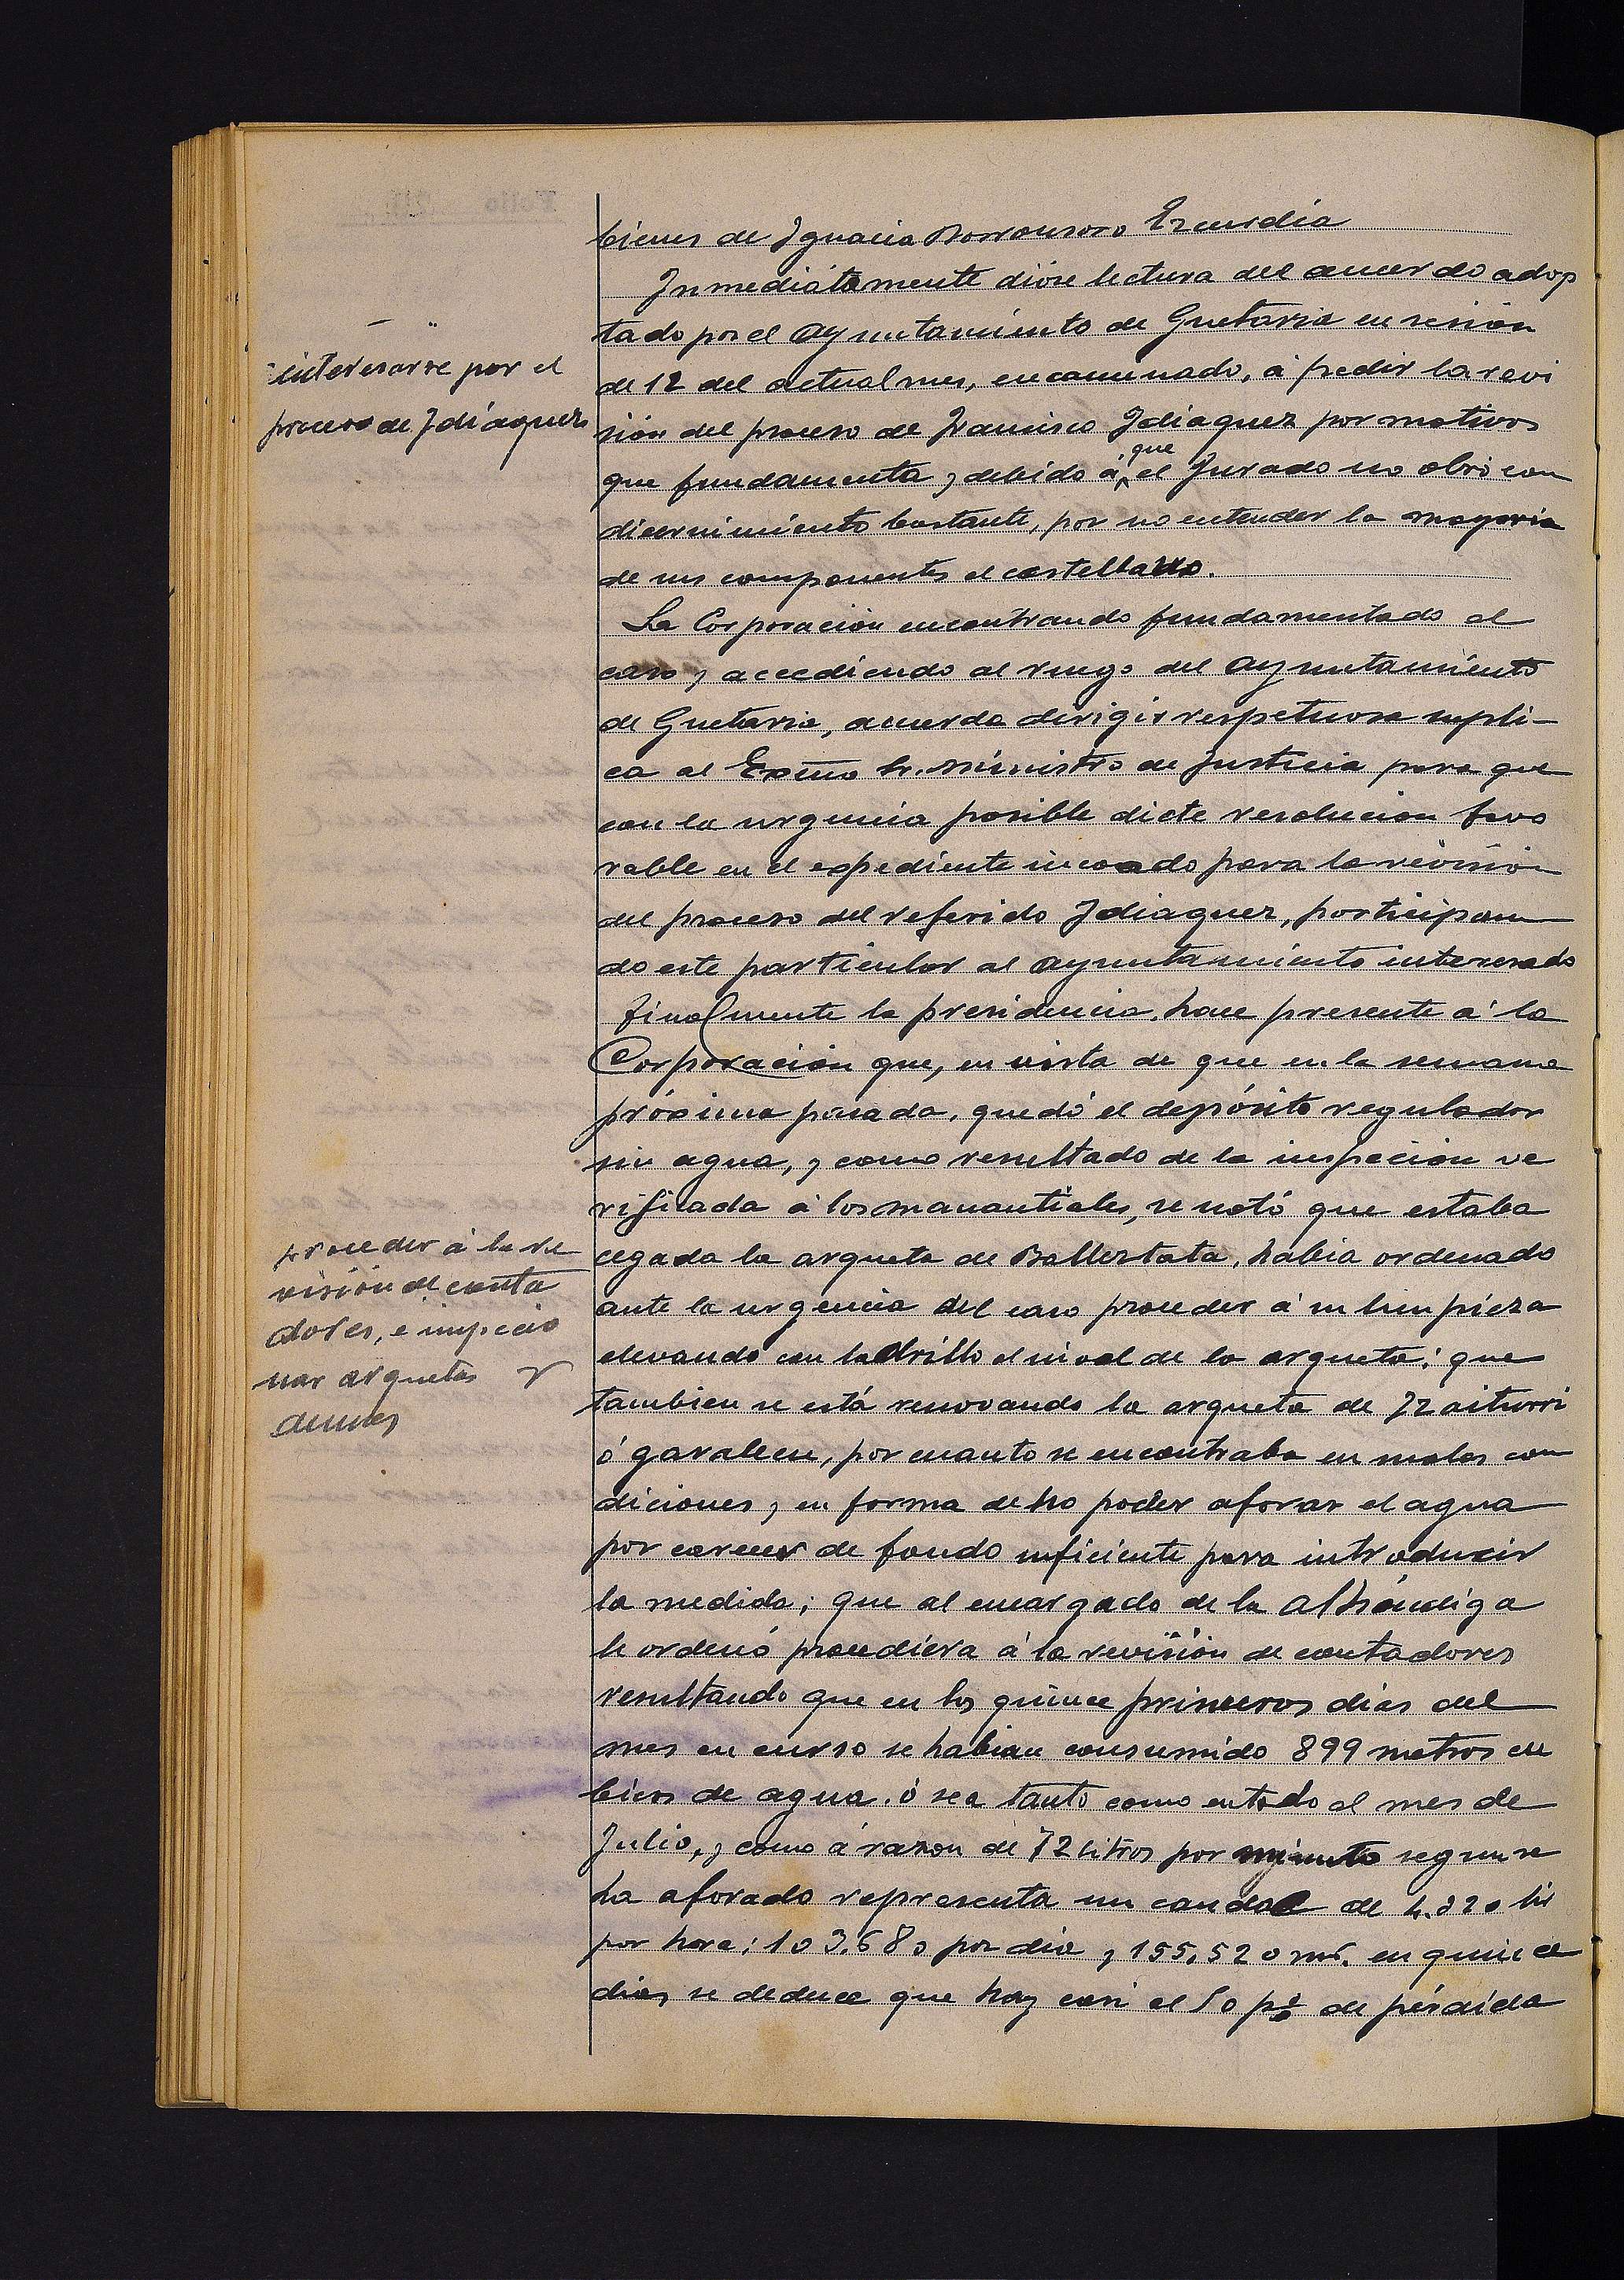 bienes de Ignacia Barrousoro Ezcurdia
Inmediatamente dióse lectura del acuerdo adop
tado por el Ayuntamiento de Guetaria en sesión
interesarse por el
de 12 del actual mes, encaminado, á pedir la revi
proceso de Idiaquez
sión del proceso de Francisco Idiaquez por motivos
que fundamenta y debido á que el Jurado no obró con
dicernimiento bastante, por no entender la mayoria
de sus componentes el castellano.
La Corporación encontrando fundamentado el
caso y accediendo al ruego del Ayuntamiento
de Guetaria, acuerda dirigir respetuosa supli-
ca al Exmo Sr. Ministro de Justicia para que
con la urgencia posible dicte resolucion favo
rable en el expediente incoado para la revisión
del proceso del referido Idiaquez, participan
do este particular al Ayuntamiento interesado
Finalmente la presidencia, hace presente á la
Corporación que, en vista de que en la semana
próxima pasada, quedó el depósito regulador
sin agua, y como resultado de la inspeción ve
rificada á los manantiales, se notó que estaba
proceder á la re
cegada la arqueta de Ballestata, habia ordenado
visión de conta
ante la urgencia del caso proceder á su limpieza
dores, é inspeccio
elevando con ladrillo el nivel de la arqueta; que
nar arquetas y
tambien se está renovando la arqueta de Izaiturri
demas
ó garalecu, por cuanto se encontraba en malas con
diciones y en forma de no poder aforar el agua
por carecer de fondo suficiente para introducir
la medida; que al encargado de la Alhóndiga
le ordenó procediera á la revisión de contadores
resultando que en los quince primeros dias del
mes en curso se habian consumido 899 metros cu
bicos de agua. ó sea tanto como en todo el mes de
Julio, y como á razon de 72 litros por minuto segun se
ha aforado representa un caudal de 4.320 lit
por hora; 103.680 por dia y 155,520 mts. en quince
dias se deduce que hay casi el 50 p% de pérdida